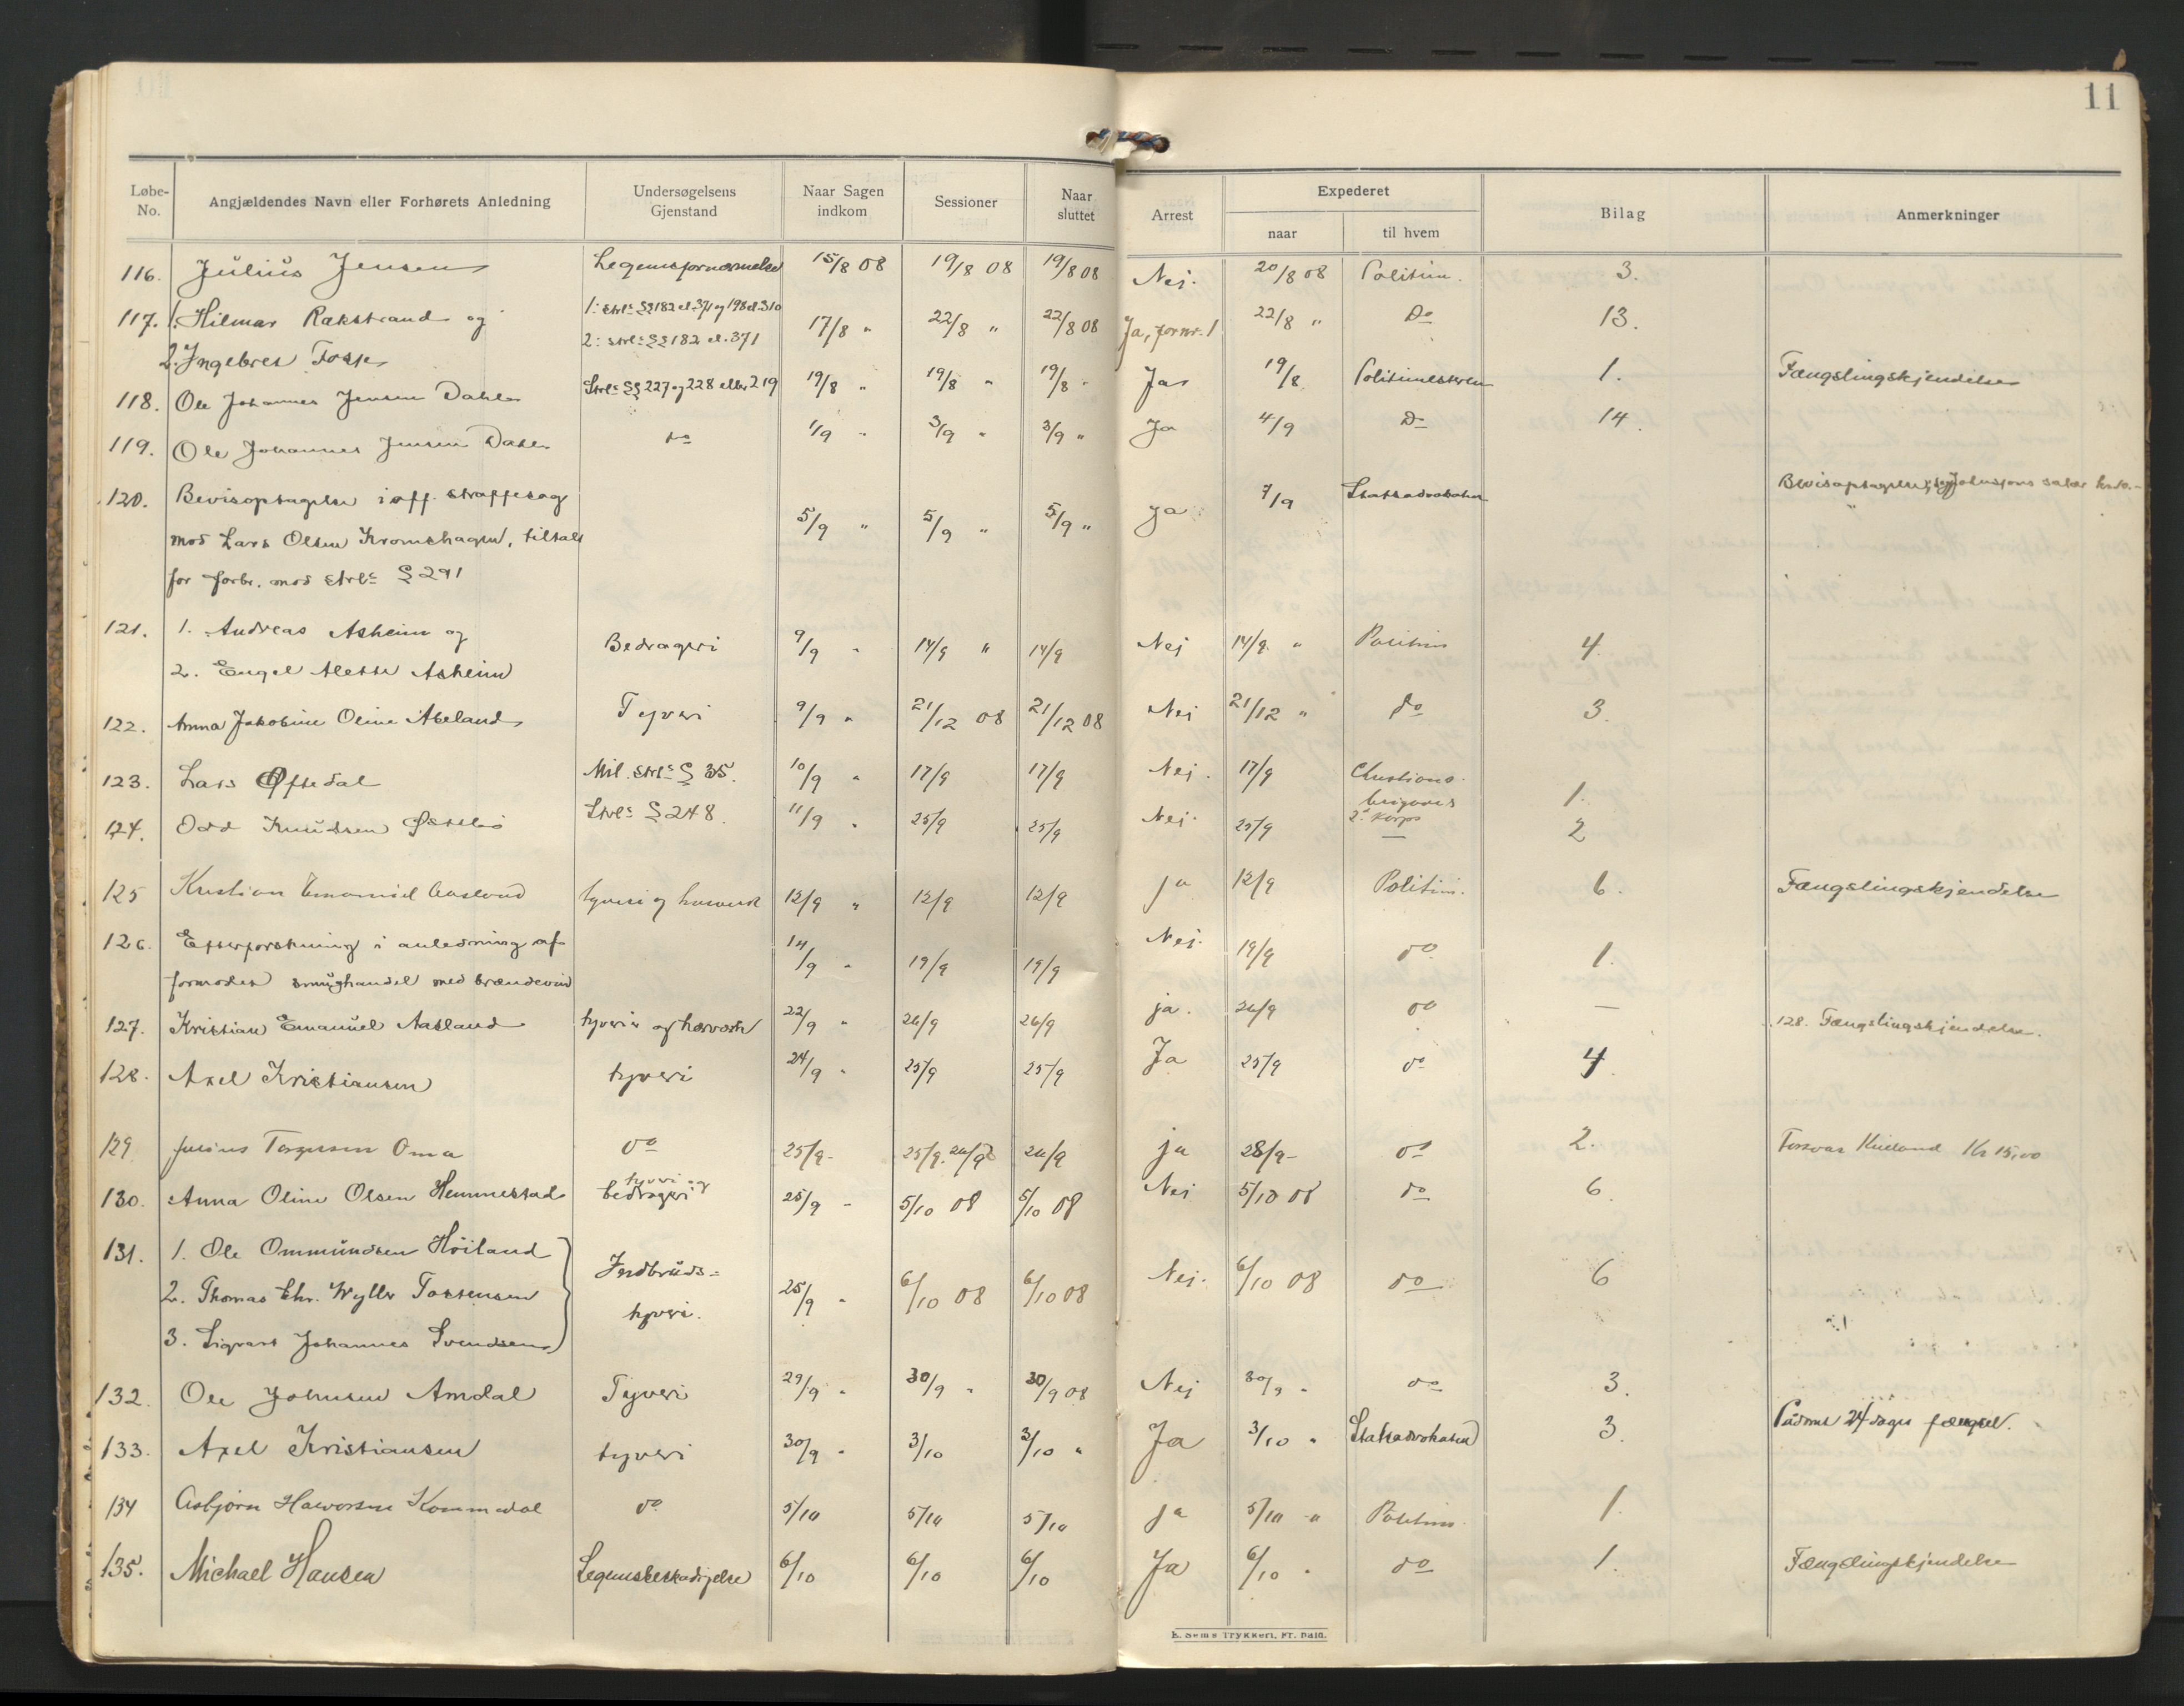 11
Løbe-No. Angjældendes Navn eller Forhørets Anledning Undersøgelsens Gjenstand Naar Sagen indkom Sessioner Naar sluttet Arrest Expederet naar til hvem Bilag Anmerkninger
116. Julius Jensen Legemsfornærmelse 15/8 08 19/8 08 19/8 08 Nei. 20/8 08 Politim. 3.
117. 1. Hilmar Rakstrand og 1: strl. §§182 cl. 371 og 198 cl. 310 17/8 " 22/8 " 22/8 08 Ja, for nr. 1 22/8 " Do 13.
2. Ingebret Fosse 2: strl. §§182 cl. 371
118. Ole Johannes Jensen Dahle Strl. §§ 227 og 228 eller 219 19/8 " 19/8 " 19/8 " Ja 19/8 Politimesteren 1. Fængslingskjendelse
119. Ole Johannes Jensen Dahle do 1/9 " 3/9 " 3/9 " Ja 4/9 Do 14.
120. Bevisoptagelse i off. straffesag 7/9 Statsadvokaten Bevisoptagelse,
mod Lars Olsen Kromshagen, tiltalt 5/9 " 5/9 " 5/9 " ja
for forbr. mod strl. § 291
121. 1. Andreas Asheim og Bedrageri 9/9 " 14/9 " 14/9 Nei 14/9 " Politim 4.
2. Engel Alette Asheim
122. Anna Jakobine Oline Abeland Tyveri 9/9 " 21/12 08 21/12 08 Nei 21/12 " do 3.
123. Lars Oftedal Mil. strl. § 35. 10/9 " 17/9 17/9 Nei. 17/9 1.
124. Odd Knudsen Strl. § 248. 11/9 " 25/9 25/9 Nei. 25/9 2. korps — 2
125 Kristian Emanuel Aasland tyveri og hærverk 12/9 " 12/9 12/9 ja 12/9 Politim. 6. Fængslingskjendelse
126. Efterforskning i anledning af 14/9 " 19/9 19/9 Nei. 19/9 do 1.
formodet smughandel med brændevin
127. Kristian Emanuel Aasland tyveri og hærværk 22/9 " 26/9 26/9 ja. 26/9 do — 128. Fængslingskjendelse.
128. Axel Kristiansen tyveri 24/9 " 25/9 25/9 Ja 25/9 do 4.
129 Julius Torgersen Oma do 25/9- 25/9. 26/9 26/9 ja 28/9- do 2. Forsvar Kielland Kr 15,00
130. Anna Oline Olsen Hemmestad tyveri og bedrageri 25/9 - 5/10 08 5/10 08 Nei 5/10 08 do 6.
131. 1. Ole Ommundsen Höiland Indbruds= 25/9 " 6/10 08 6/10 08 Nei. 6/10 08 do 6
2. Thomas Chr. Wyller Torstensen tyveri.
3. Sigvart Johannes Svendsen
132. Ole Johnsen Amdal Tyveri 29/9 " 30/9 " 30/9 08 Nei 30/9 " do 3.
133. Axel Kristiansen tyveri 30/9 " 3/10 3/10 " Ja 3/10 " Statsadvokaten 3. Paadømt 24 dages fængsel.
134 Asbjørn Halvorsen Kommedal do 5/10 5/10 5/10 ja 5/10 " Politim 1.
135. Michael Hansen Legemsbeskadigelse 6/10 6/10 6/10 Ja 6/10 " do 1. Fængslingskjendelse
E. Sems Trykkeri, Fr.hald.